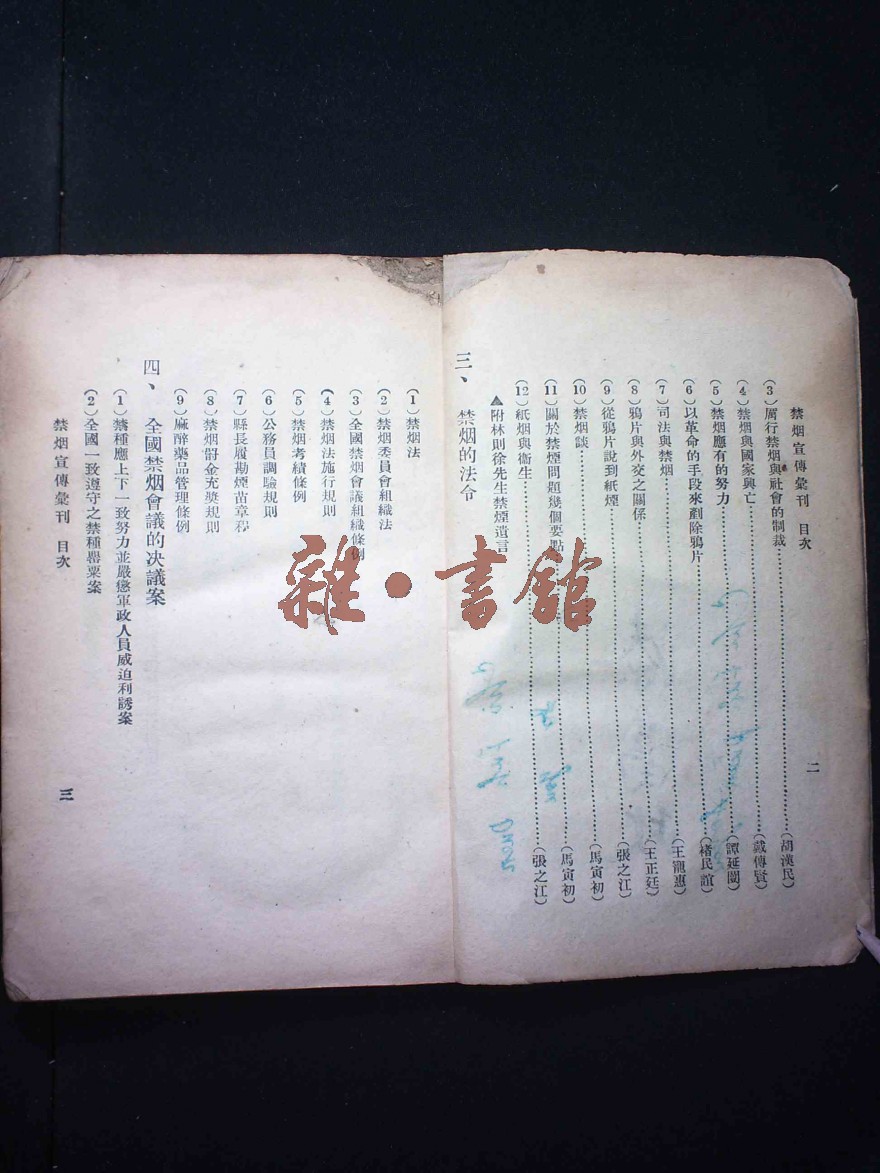 禁烟宣傳彙刊 目次
二
(3)厲行禁烟與社會的制裁……(胡漢民)
(4)禁烟與國家興亡……(戴傳賢)
(5)禁烟應有的努力……(譚延闓)
(6)以革命的手段來剷除鴉片……(褚民誼)
(7)司法與禁烟……(王寵惠)
(8)鴉片與外交之關係……(王正廷)
(9)從鴉片說到紙煙……(張之江)
(10)禁烟談……(馬寅初)
(11)關於禁煙問題幾個要點……(馬寅初)
(12)紙烟與衞生……(張之江)
▲附林則徐先生禁煙遺言
三、禁烟的法令
(1)禁烟法
(2)禁烟委員會組織法
(3)全國禁烟會議組織條例
(4)禁烟法施行規則
(5)禁烟考績條例
(6)公務員調驗規則
(7)縣長履勘煙苗章程
(8)禁烟罸金充奬規則
(9)麻醉藥品管理條例
四、全國禁烟會議的决議案
(1)禁種應上下一致努力並嚴懲軍政人員威迫利誘案
(2)全國一致遵守之禁種罌粟案
禁烟宣傳彙刊 目次
三
雜·書館